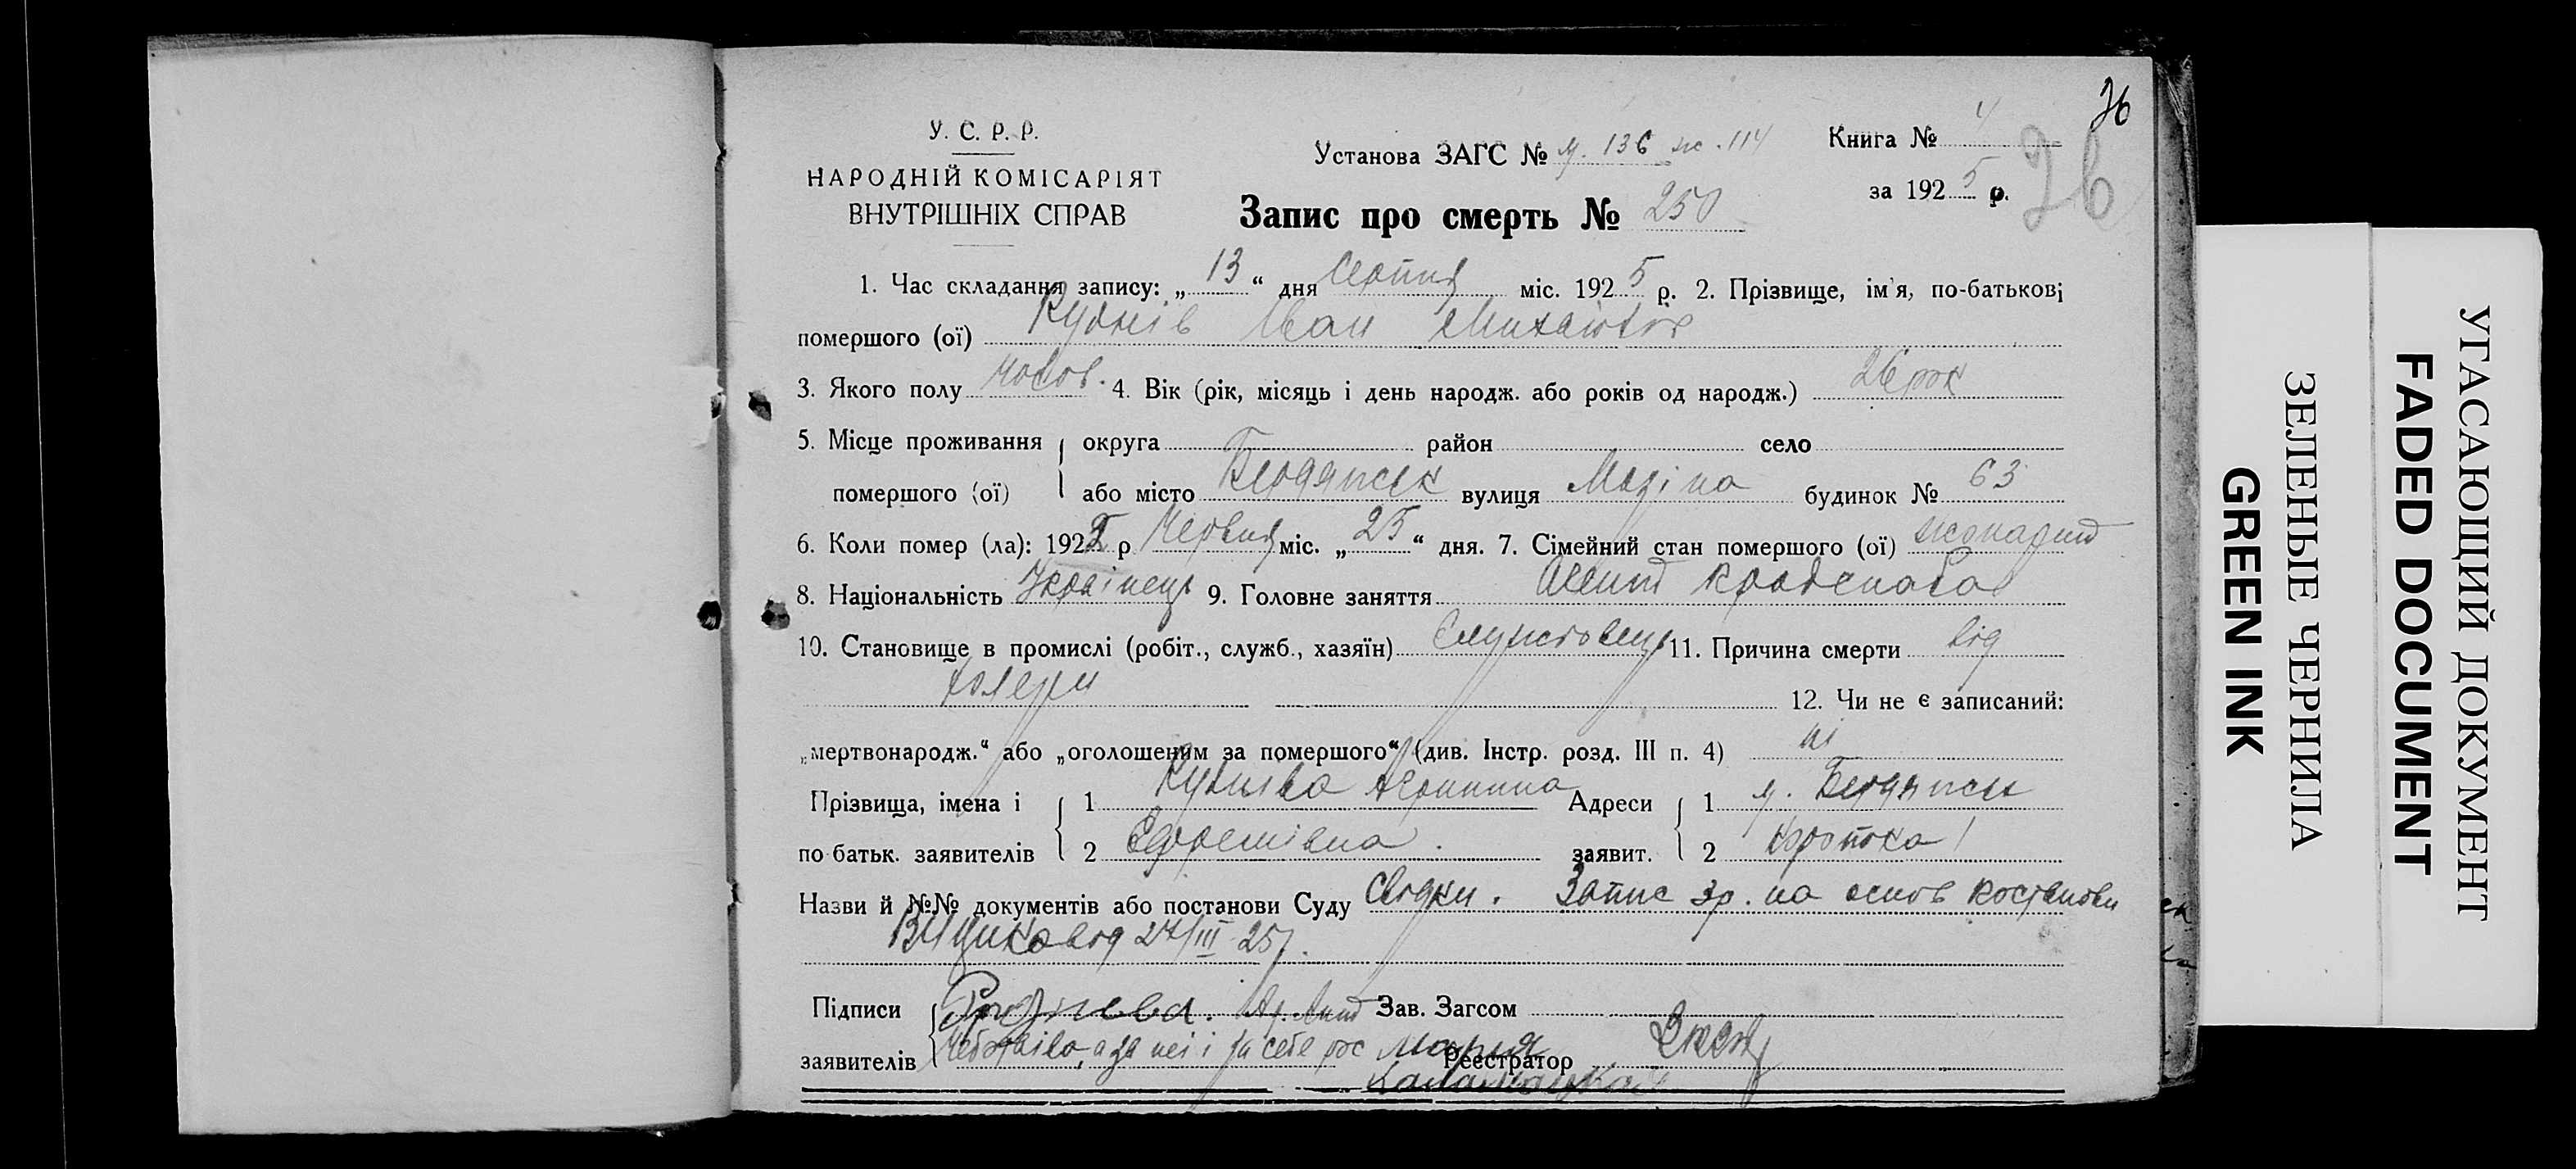 36
У. С. Р. Р.
НАРОДНІЙ КОМІСАРІЯТ
ВНУТРІШНІХ СПРАВ
Установа ЗАГС № м. 136 ж. 114
Книга № 4
за 1925 р.
36
Запис про смерть № 250
1. Час складання запису: „13“ дня Серпня міс. 1925 р. 2. Прізвище, ім'я, по-батькові
помершого (ої) Руднів Іван Михайлов
3. Якого полу чолов. 4. Вік (рік, місяць і день народж. або років од народж.) 26 рок
5. Місце проживання округа район село
помершого (ої) або місто Бердянськ вулиця Мазіна будинок № 63
6. Коли помер (ла): 192 р Червня міс. „25“ дня. 7. Сімейний стан помершого (ої) жонатий
8. Національність Українець 9. Головне заняття Агент
10. Становище в промислі (робіт., служб., хазяїн) Служговець 11. Причина смерти від
холери
12. Чи не є записаний:
„мертвонародж.“ або „оголошеним за помершого“ (див. Інстр. розд. III п. 4) ні
Прізвища, імена і 1 Руднівa Агрипина Адреси 1 м. Бердянськ
по батьк. заявителів 2 Єфремівна. заявит. 2
Назви й №№ документів або постанови Суду Свідки. Запис зр. на основ постанови
від 24/III 25
Підписи Зав. Загсом
заявителів а за неї і за себе рос Мария Реєстратор
УГАСАЮЩИЙ ДОКУМЕНТ
FADED DOCUMENT
ЗЕЛЕНЫЕ ЧЕРНИЛА
GREEN INK